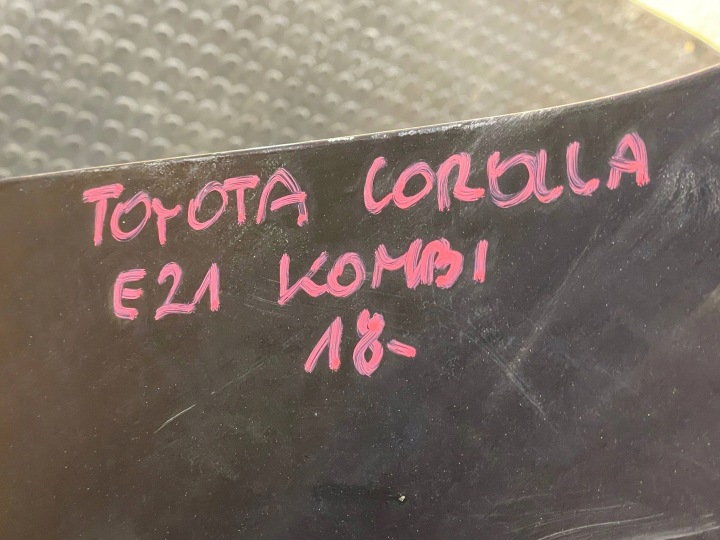 TOYOTA COROLLA
E21 KOMBI
18-